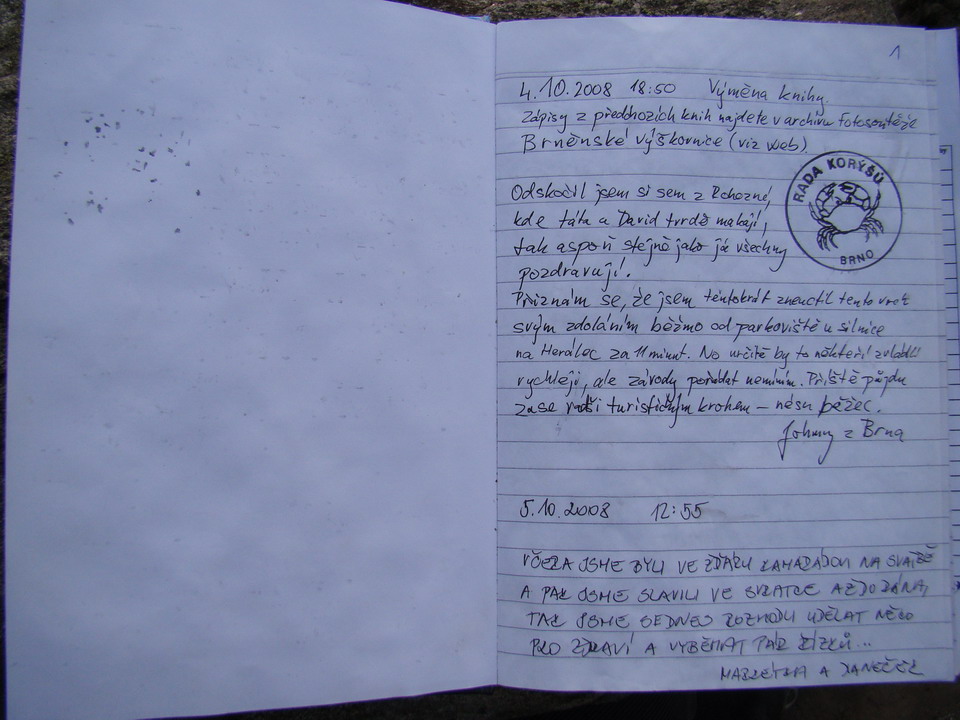 1
4.10.2008 18:50 Výměna knihy.
Zápisy z předchozích knih najdete v archivu fotosoutěže
Brněnské výškovnice (viz web)
RADA KORÝŠŮ
BRNO
Odskočil jsem si sem z Rohozné,
kde táta a David tvrdě makají,
tak aspoň stejně jako já všechny
pozdravují.
Přiznám se, že jsem tentokrát zneuctil tento vrch
svým zdoláním běžmo od parkoviště u silnice
na Herálec za 11 minut. No určitě by to někteří zvládli
rychleji, ale závody pořádat nemíním. Příště půjdu
zase radši turistickým krokem – nésu běžec.
Johnny z Brna
5.10.2008 12:55
VČERA JSME BYLI VE ŽĎÁRU KAMARÁDOM NA SVATBĚ
A PAK JSME SLAVILI VE SVRATCE AŽ DO RÁNA,
TAK JSME SE DNES ROZHODLI UDĚLAT NĚCO
PRO ZDRAVÍ A VYBĚHAT PÁR ŘÍZKŮ...
MARKÉTKA A JANEČEK